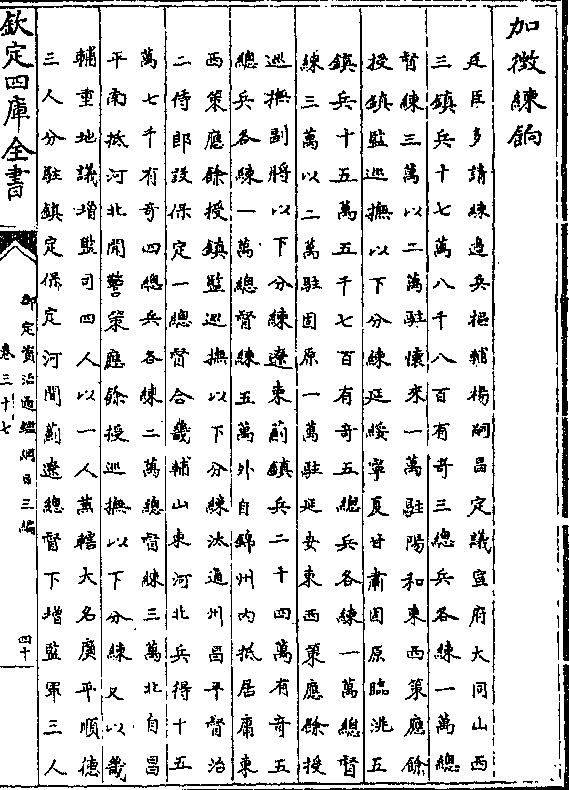 加徴練餉
廷臣多請練邊兵樞輔楊嗣昌定議宣府大同山西
三鎮兵十七萬八千八百有奇三總兵各練一萬總
督練三萬以二萬駐懷來一萬駐陽和東西策應餘
授鎮監巡撫以下分練延綏寧夏甘肅固原臨洮五
鎮兵十五萬五千七百有奇五總兵各練一萬總督
練三萬以二萬駐固原一萬駐延安東西策應餘授
巡撫副將以下分練遼東薊鎮兵二十四萬有奇五
總兵各練一萬總督練五萬外自錦州內抵居庸東
西策應餘授鎮監巡撫以下分練汰通州昌平督治
二侍郎設保定一總督合畿輔山東河北兵得十五
萬七千有奇四總兵各練二萬總督練三萬北自昌
平南抵河北聞警策應餘授巡撫以下分練又以畿
輔重地議增監司四人以一人兼轄大名廣平順德
三人分駐鎮定保定河間薊遼總督下增監軍三人
欽定四庫全書
御定資治通鑑綱目三編
卷三十七
四十